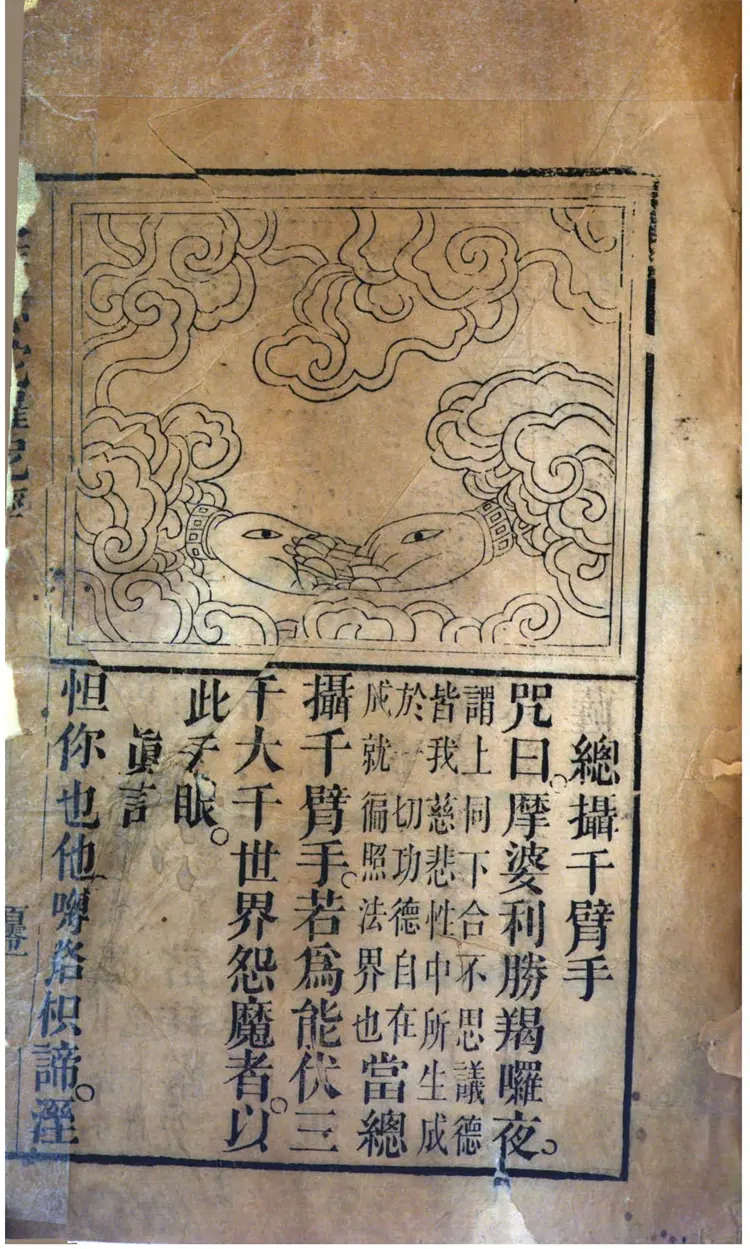 總攝千臂手
咒曰。摩婆利勝羯囉夜。
謂上同下合不思議德
皆我慈悲性中所生成
於一切功德自在
成就徧照法界也
當總
攝千臂手。若爲能伏三
千大千世界怨魔者。以
此手眼。
眞言
怛你也他嚩路枳諦。溼
陀羅尼經